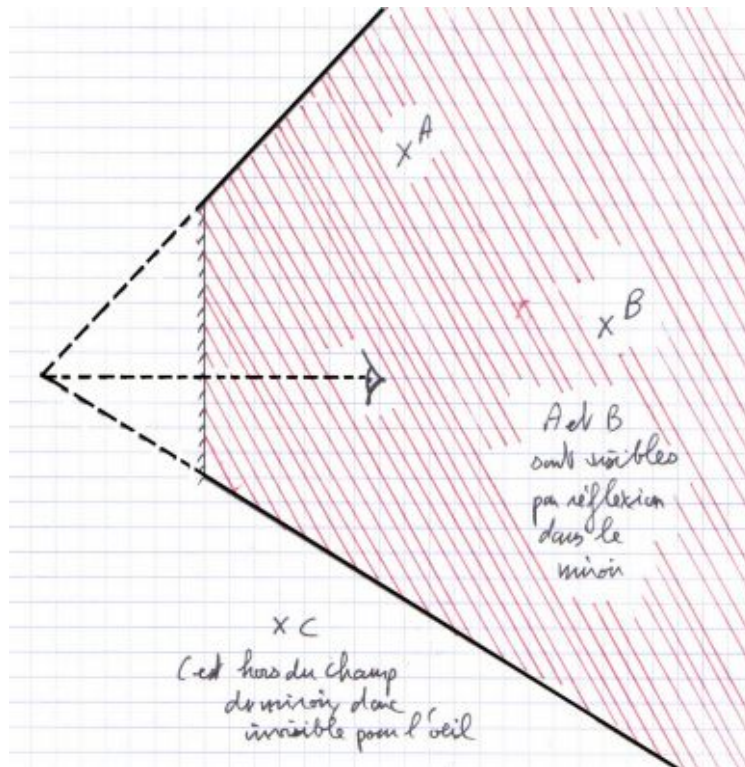 x A
x B
A et B
sont visibles
par réflexion
dans le
miroir
x C
C est hors du champ
du miroir, donc
invisible pour l'oeil